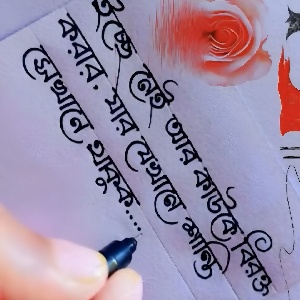 ইচ্ছে নেই আর কাউকে বিরক্ত
করার, যার যেখানে শান্তি
সেখানে থাকুক....